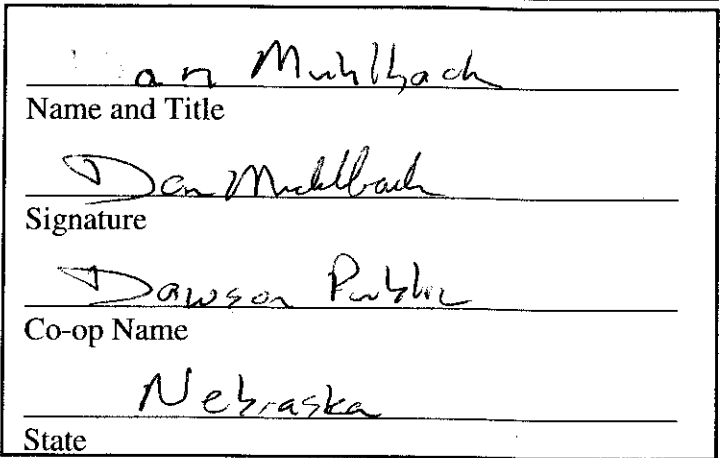 an Muhlbach
Name and Title
Dan Muhlbach
Signature
Dawson Public
Co-op Name
Nebraska
State